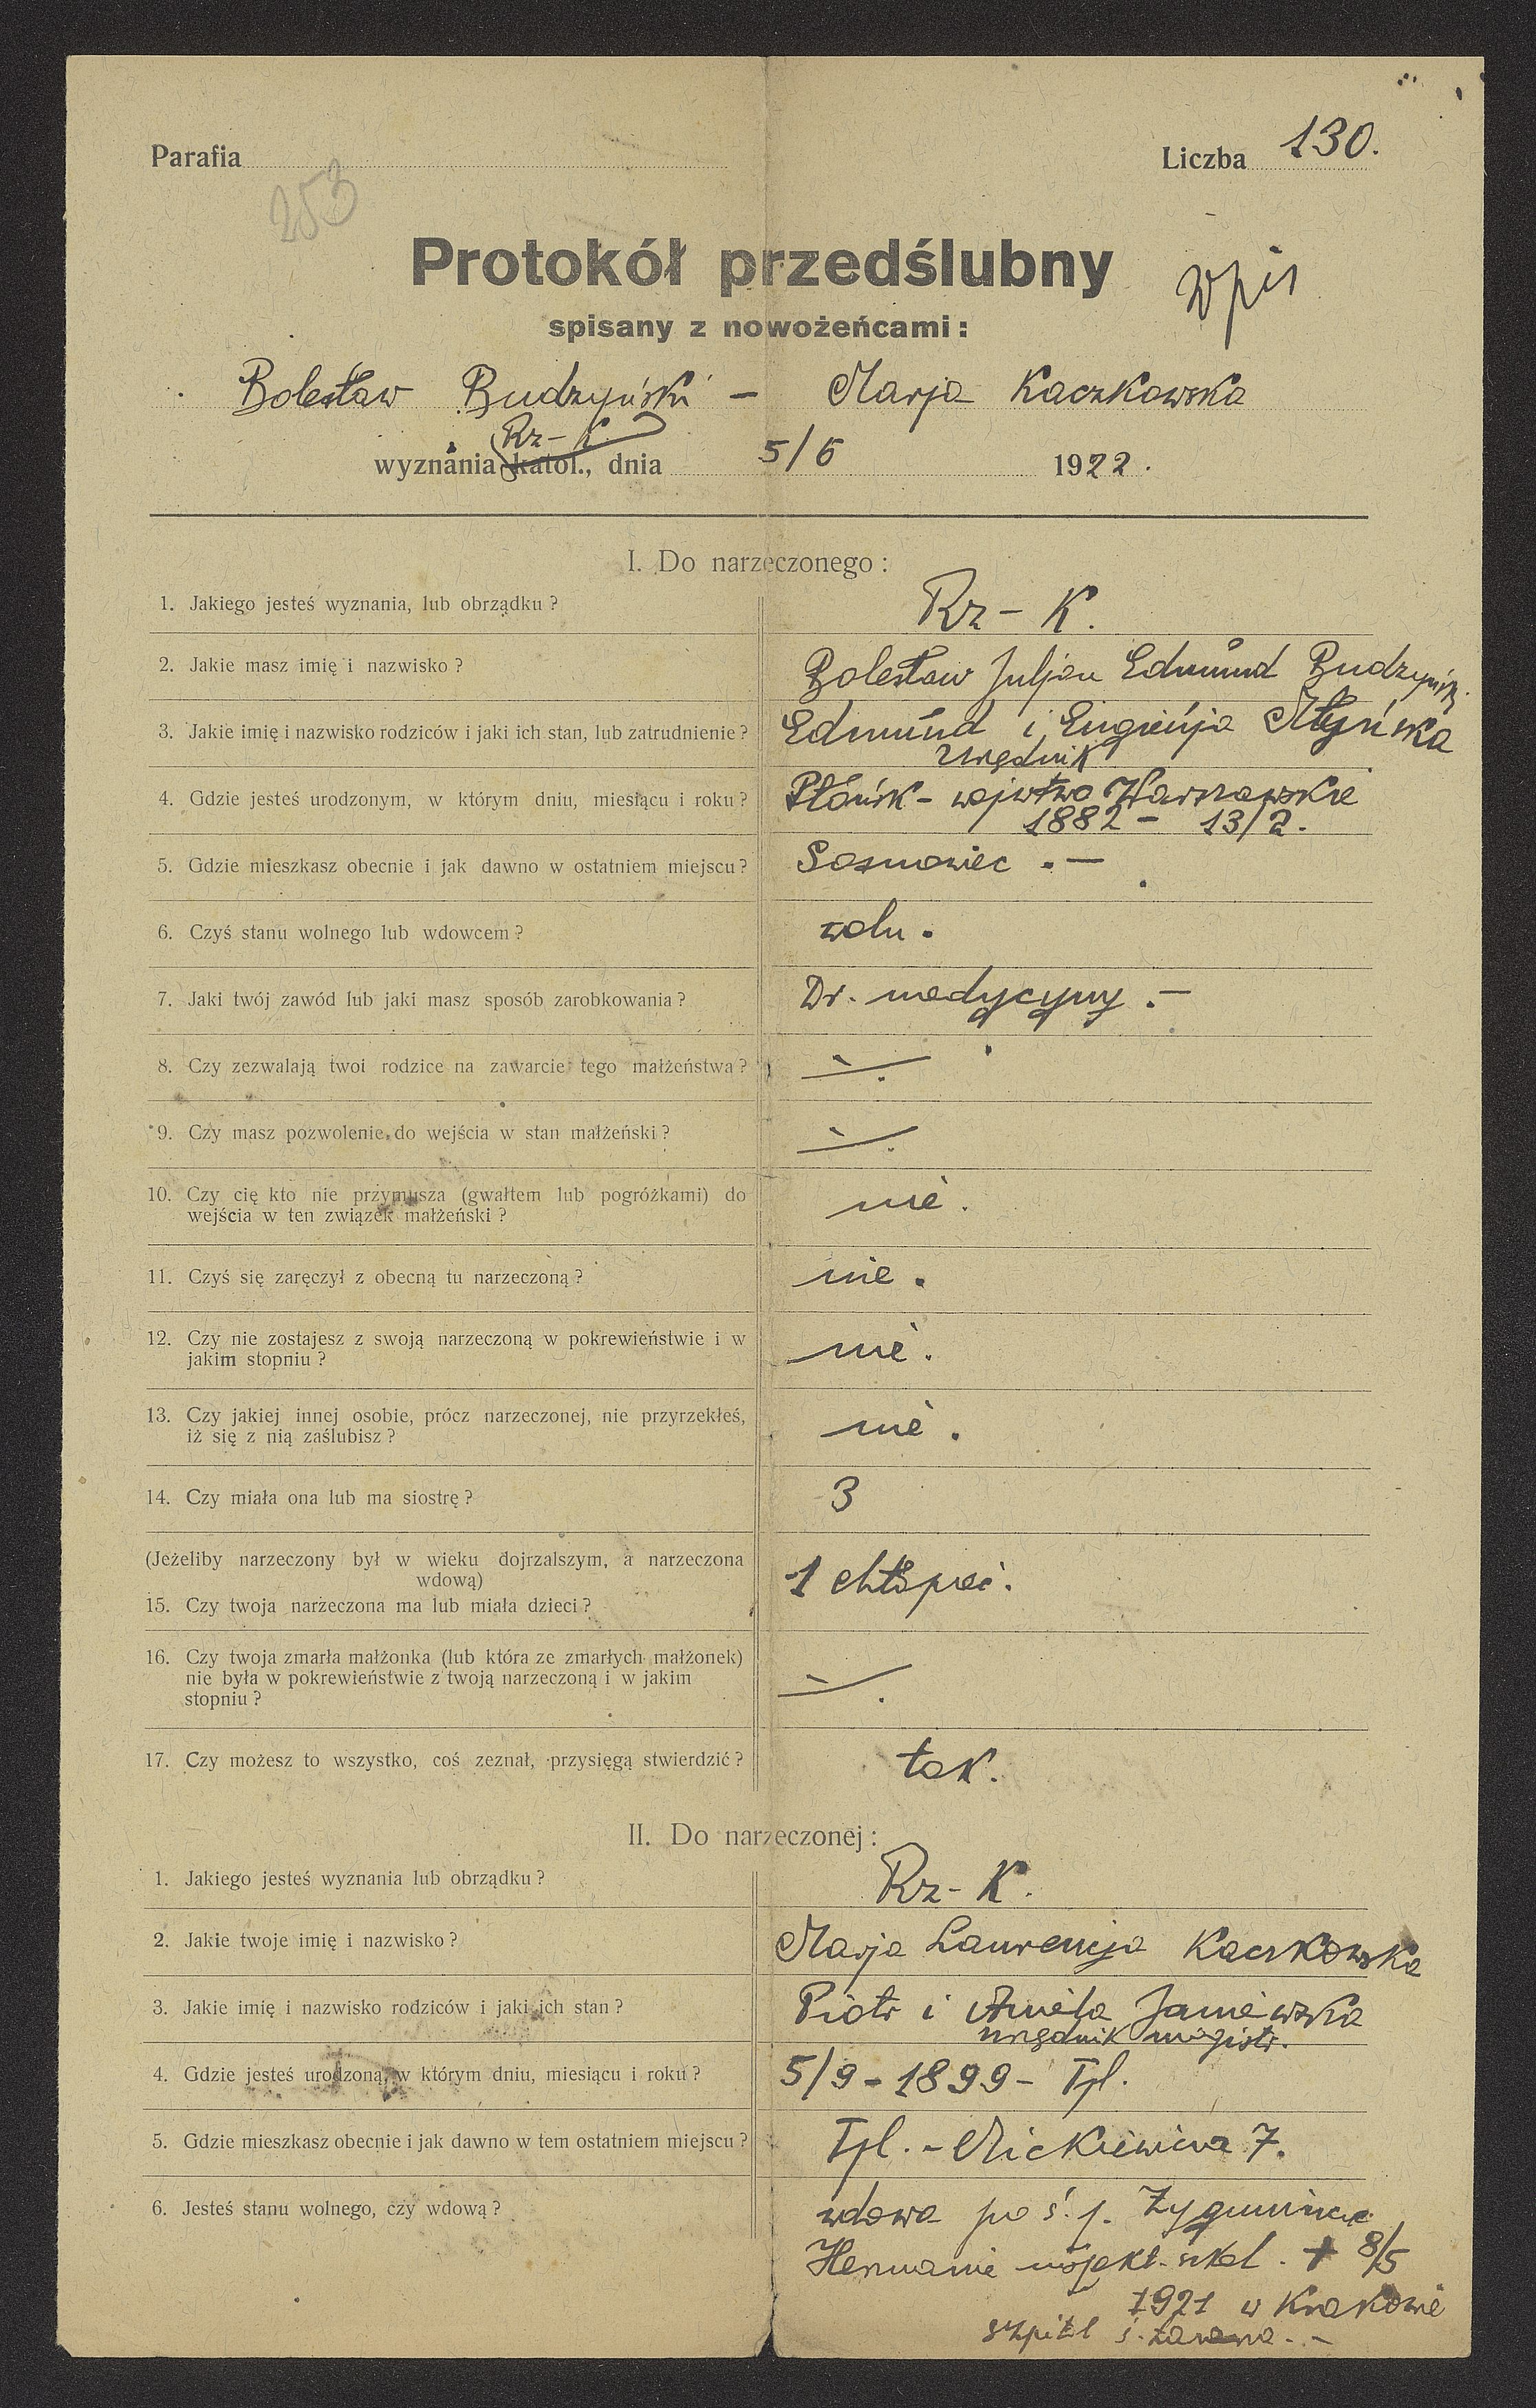 Parafia
Liczba 130.
253
Protokół przedślubny
wpis
spisany z nowożeńcami:
Bolesław Budzyński – Marja Kaczkowska
Rz-K.
wyznania katol., dnia 5/6 1922.
I. Do narzeczonego:
1. Jakiego jesteś wyznania, lub obrządku?
Rz-K.
2. Jakie masz imię i nazwisko?
Bolesław Juljan Edmund Budzyński
3. Jakie imię i nazwisko rodziców i jaki ich stan, lub zatrudnienie?
Edmund i Eugienja
Urzędnik
4. Gdzie jesteś urodzonym, w którym dniu, miesiącu i roku?
Płońsk - wojwtwo Warszawskie
1882 - 13/2.
5. Gdzie mieszkasz obecnie i jak dawno w ostatniem miejscu?
Sosnowiec .—
6. Czyś stanu wolnego lub wdowcem?
woln.
7. Jaki twój zawód lub jaki masz sposób zarobkowania?
Dr. medycyny .—
8. Czy zezwalają twoi rodzice na zawarcie tego małżeństwa?
9. Czy masz pozwolenie do wejścia w stan małżeński?
10. Czy cię kto nie przymusza (gwałtem lub pogróżkami) do
wejścia w ten związek małżeński?
nie.
11. Czyś się zaręczył z obecną tu narzeczoną?
nie.
12. Czy nie zostajesz z swoją narzeczoną w pokrewieństwie i w
jakim stopniu?
nie.
13. Czy jakiej innej osobie, prócz narzeczonej, nie przyrzekłeś,
iż się z nią zaślubisz?
nie.
14. Czy miała ona lub ma siostrę?
3
(Jeżeliby narzeczony był w wieku dojrzalszym, a narzeczona
wdową)
15. Czy twoja narzeczona ma lub miała dzieci?
1 chłopiec.
16. Czy twoja zmarła małżonka (lub która ze zmarłych małżonek)
nie była w pokrewieństwie z twoją narzeczoną i w jakim
stopniu?
17. Czy możesz to wszystko, coś zeznał, przysięgą stwierdzić?
tak.
II. Do narzeczonej:
1. Jakiego jesteś wyznania lub obrządku?
Rz-K.
2. Jakie twoje imię i nazwisko?
Marja Laurencja Kaczkowska
3. Jakie imię i nazwisko rodziców i jaki ich stan?
Piotr i Aniela Janiewska
urzędnik magistr.
4. Gdzie jesteś urodzoną, w którym dniu, miesiącu i roku?
5/9 - 1899 - Tpl.
5. Gdzie mieszkasz obecnie i jak dawno w tem ostatniem miejscu?
Tpl. - Mickiewicza 7.
6. Jesteś stanu wolnego, czy wdową?
wdowa po ś. p. Zygmuncie
Hermanie szkol. + 8/5
1921 w Krakowie
szpital ś. Łazarza . -